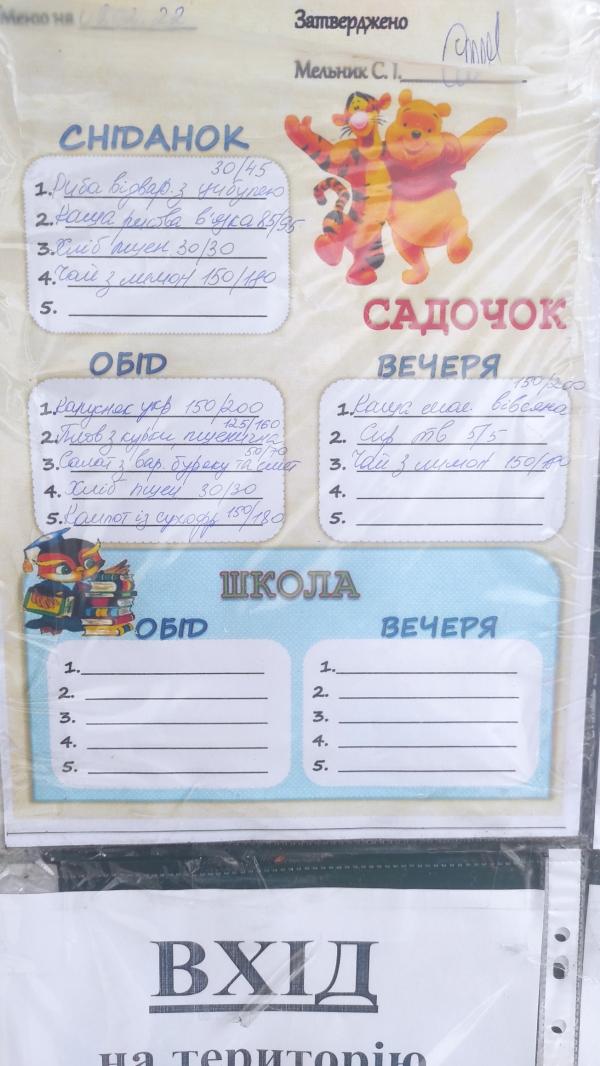 Меню на
Затверджено
Мельник С. І.
СНІДАНОК
30/45
1. Риба відвар. з цибулею
2. Каша рисова в'язка 85/95
3. Хліб пшен 30/30
4. Чай з лимон 150/180
5.
САДОЧОК
ОБІД
1. Капусняк укр 150/200
125/160
2. Плов з курки, пшенична
50/70
3. Салат з вар. буряку та
4. Хліб пшен 30/30
5. Компот із сухофр 150/180
ВЕЧЕРЯ
150/200
1. Каша вівсяна
2. Сир тв 5/5
3. Чай з лимон 150/180
4.
5.
ШКОЛА
ОБІД
1.
2.
3.
4.
5.
ВЕЧЕРЯ
1.
2.
3.
4.
5.
ВХІД
на територію